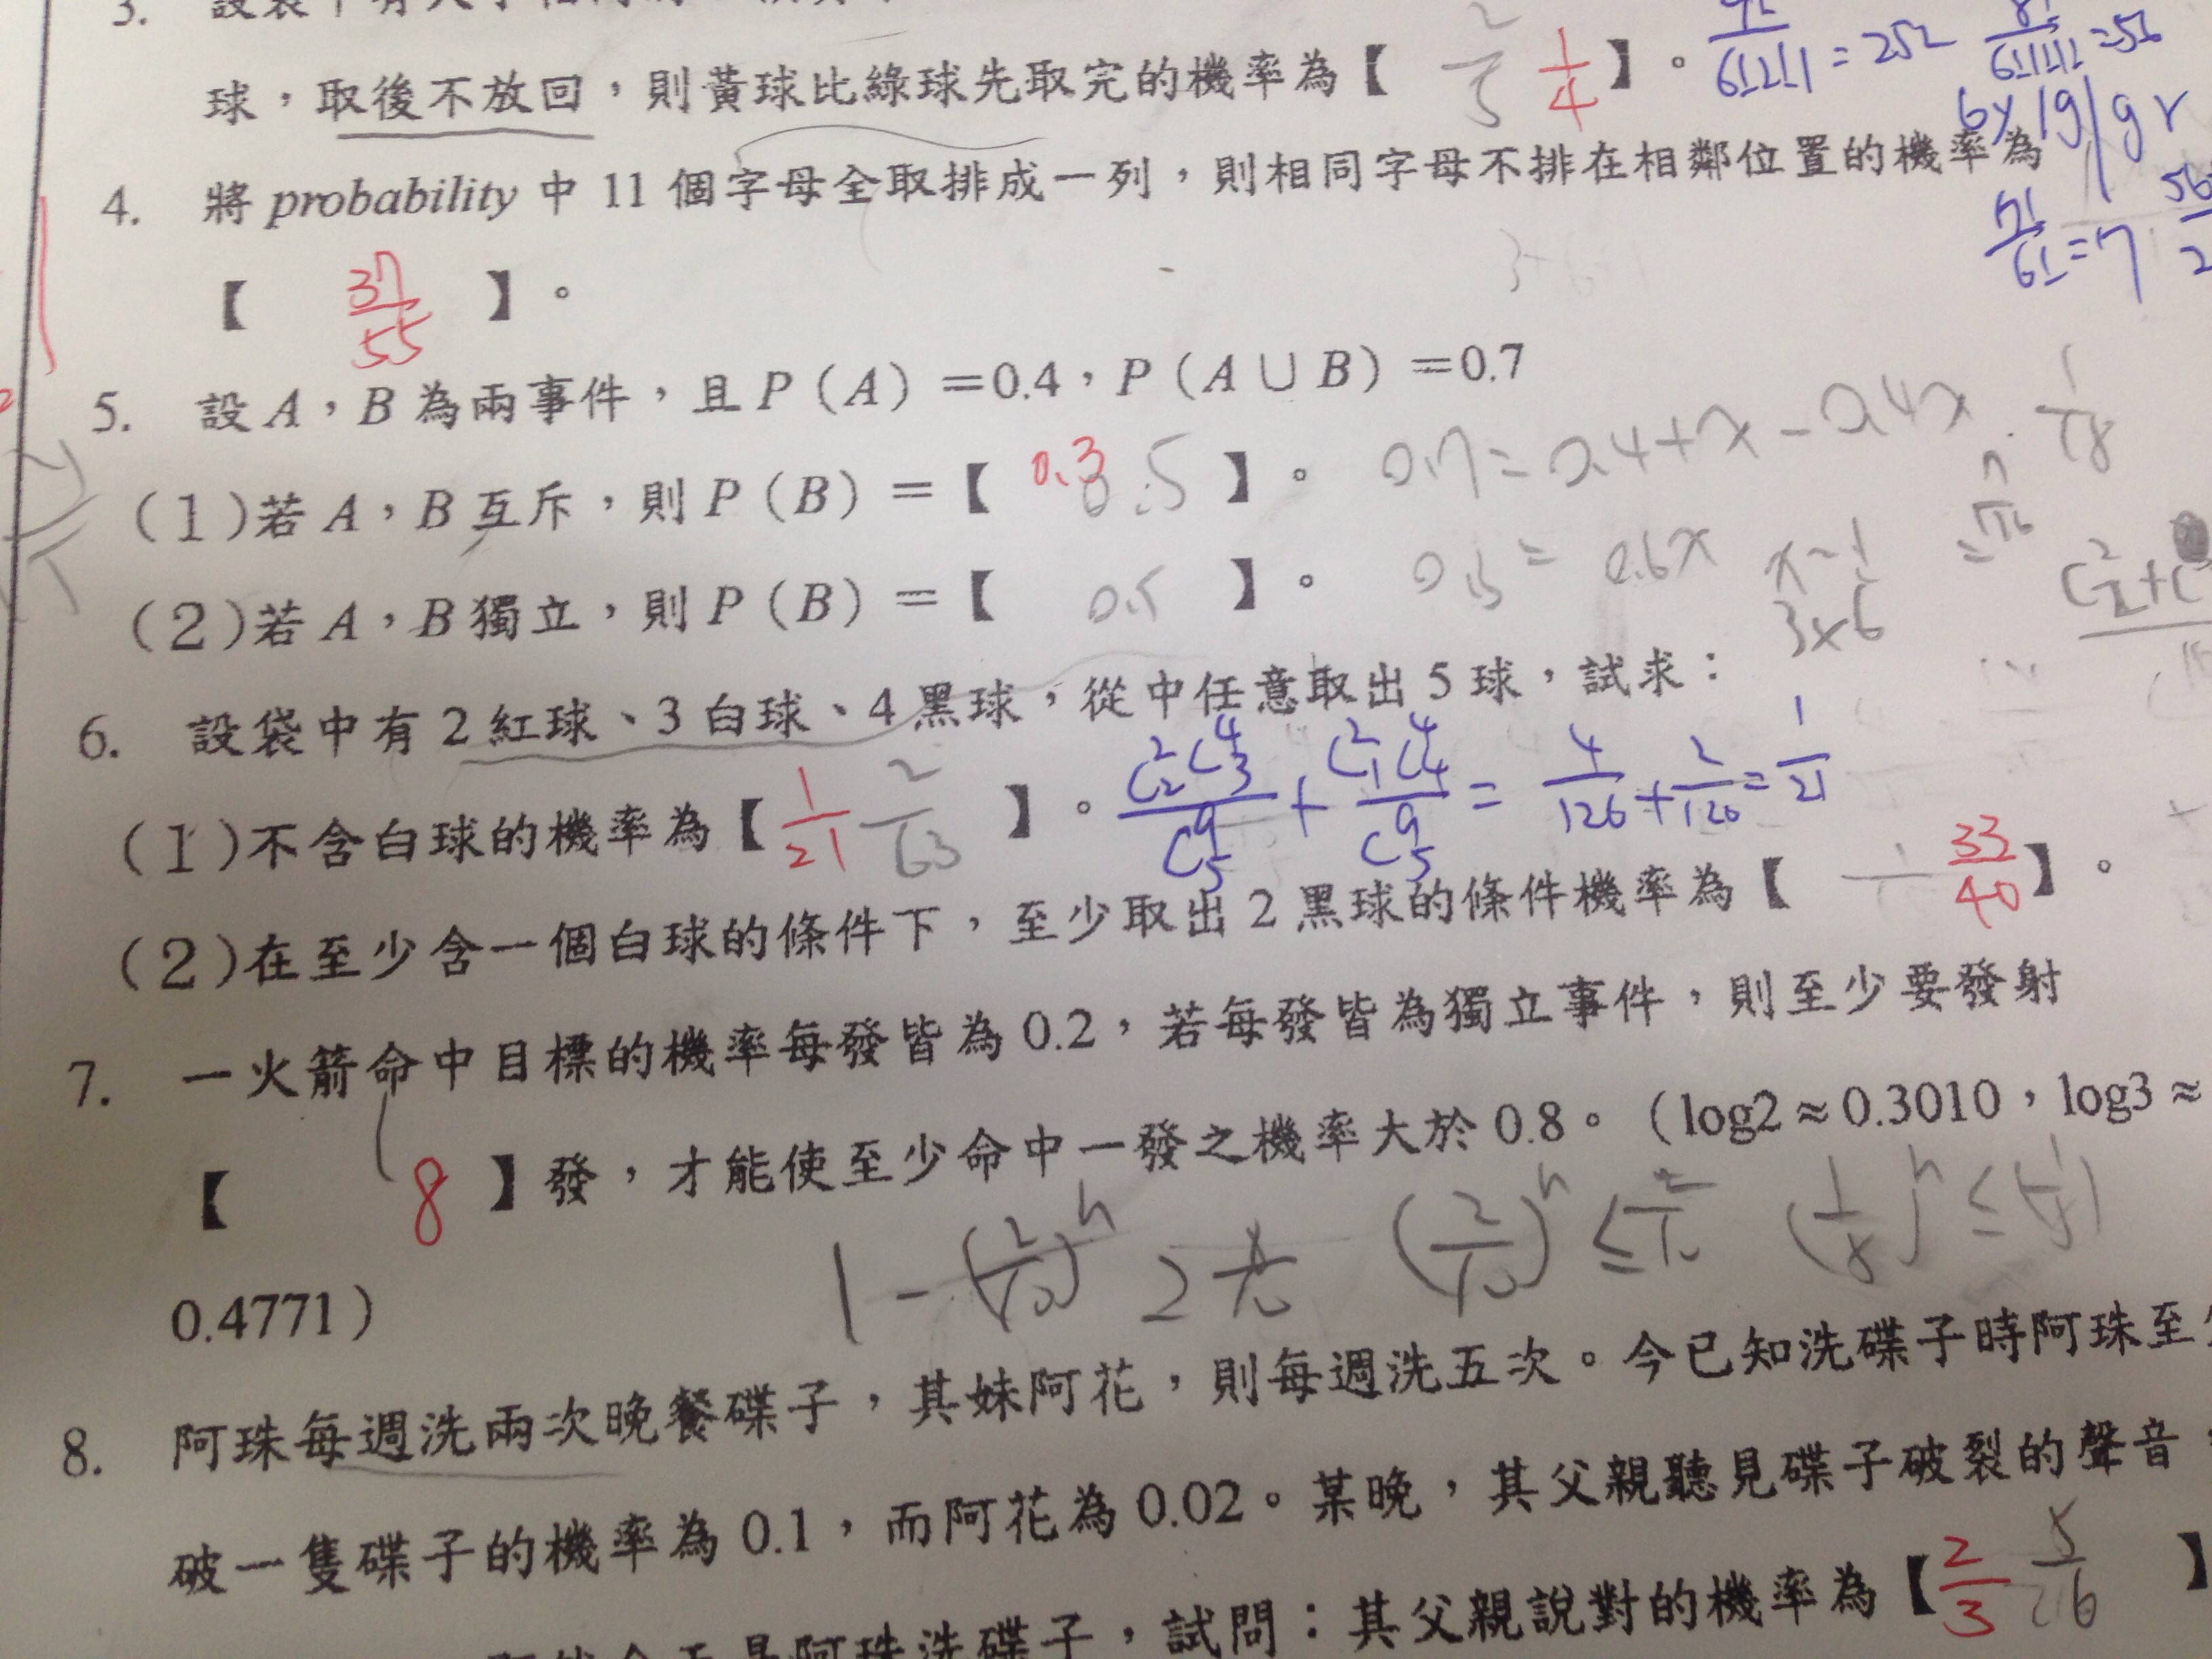 3.
球，取後不放回，則黃球比綠球先取完的機率為【 2/5 1/4 】。 /6!2!1! = 252 8!/6!1!1! = 56
6y 1g | g r
4. 將 probability 中 11 個字母全取排成一列，則相同字母不排在相鄰位置的機率為
7!/6! = 7
【 37/55 】。
5. 設 A，B 為兩事件，且 P（A）＝0.4，P（A∪B）＝0.7
（1）若 A，B 互斥，則 P（B）＝【 0.3 0.5 】。 0.7 = 0.4 + x - 0.4x 1/18
（2）若 A，B 獨立，則 P（B）＝【 0.5 】。 0.3 = 0.6x
3x6
6. 設袋中有 2 紅球、3 白球、4 黑球，從中任意取出 5 球，試求：
（1）不含白球的機率為【 1/21 2/63 】。 C²₂C⁴₃/C⁹₅ + C²₁C⁴₄/C⁹₅ = 4/126 + 2/126 = 1/21
（2）在至少含一個白球的條件下，至少取出 2 黑球的條件機率為【 33/40 】。
7. 一火箭命中目標的機率每發皆為 0.2，若每發皆為獨立事件，則至少要發射
【 8 】發，才能使至少命中一發之機率大於 0.8。（log2≈0.3010，log3≈
0.4771） 1 - (2/10)ⁿ ≥ 8/10 (2/10)ⁿ ≤ 2/10
8. 阿珠每週洗兩次晚餐碟子，其妹阿花，則每週洗五次。今已知洗碟子時阿珠至
破一隻碟子的機率為 0.1，而阿花為 0.02。某晚，其父親聽見碟子破裂的聲音
是阿珠洗碟子，試問：其父親說對的機率為【 2/3 】